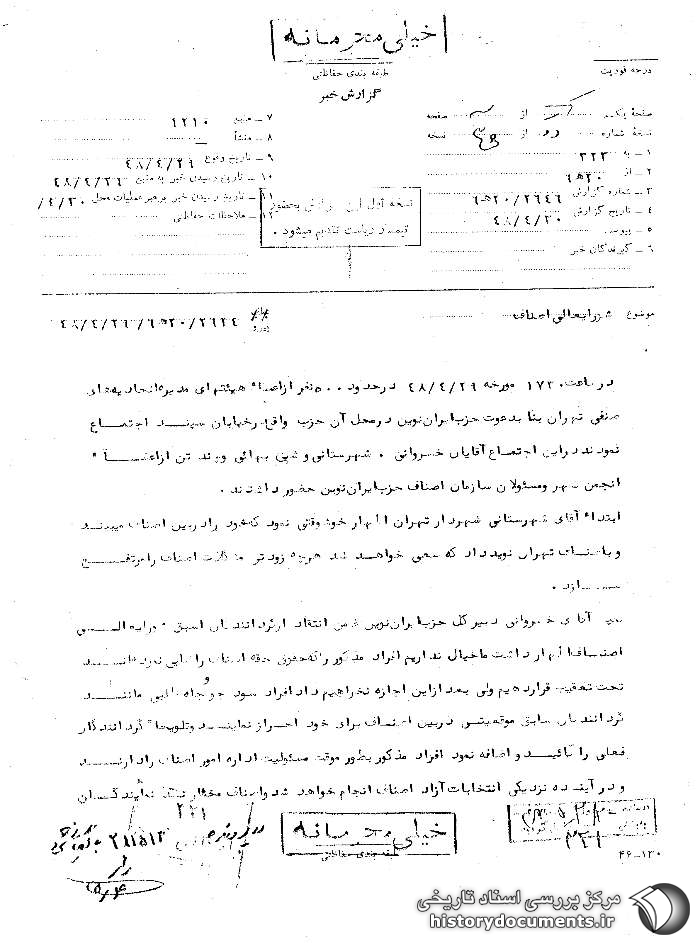 خیلی محرمانه
طبقه بندی حفاظتی
درجه فوریت
گزارش خبر
صفحهٔ یک از صفحه
نسخهٔ شماره از نسخه
۱ ــ به ۳۲۲
۲ ــ از ۲۰ه۶
۳ ــ شماره گزارش ۲۰/۲۶۴۶ه۶
۴ ــ تاریخ گزارش ۴۸/۴/۳۰
۵ ــ پیوست
۶ ــ گیرندگان خبر
۷ ــ منبع ۱۲۱۰
۸ ــ منشأ
۹ ــ تاریخ وقوع ۴۸/۴/۲۹
۱۰ ــ تاریخ رسیدن خبر به منبع ۴۸/۴/۲۹
۱۱ ــ تاریخ رسیدن خبر برهبر عملیات محل ۴/۳۰/
۱۲ ــ ملاحظات حفاظتی
نسخه اول این گزارش بحضور
تیمسار ریاست تقدیم میشود .
موضوع شورایعالی اصناف ۲۰/۲۶۲۴ه۶-۴۸/۴/۲۹
در ساعت ۱۷۳۰ مورخه ۴۸/۴/۲۹ در حدود ۵۰۰ نفر از اعضاء هیئتهای مدیره اتحادیه های
صنفی تهران بنا بدعوت حزب ایران نوین در محل آن حزب واقع در خیابان اجتماع
نمودند در این اجتماع آقایان خسروانی . شهرستانی و شفیع بهائی و چند تن از اعضاء
انجمن شهر و مسئولان سازمان اصناف حزب ایران نوین حضور داشتند .
ابتدا آقای شهرستانی شهردار تهران اظهار خوشوقتی نمود که خود را در بین اصناف میبیند
و باصناف تهران نوید داد که سعی خواهد شد هرچه زودتر مشکلات اصناف را مرتفع
سازد .
سپس آقای خسروانی دبیر کل حزب ایران نوین ضمن انتقاد از گردانندگان اسبق شورایعالی
اصناف اظهار داشت ما خیال نداریم افراد مذکور را که حقوق حقه اصناف را
تحت تعقیب قرار دهیم ولی بعد از این اجازه نخواهیم داد افراد سود جو و جاه طلبی مانند
گردانندگان سابق موقعیتی در بین اصناف برای خود احراز نمایند و تلویحا گردانندگان
فعلی را تائید و اضافه نمود افراد مذکور بطور موقت مسئولیت اداره امور اصناف را دارند
و در آینده نزدیکی انتخابات آزاد اصناف انجام خواهد شد و اصناف مختار نمایندگان
خیلی محرمانه
طبقه بندی حفاظتی
در پرونده
۲۸۱۵۱۳
۴۶-۱۳۰
مرکز بررسی اسناد تاریخی
historydocuments.ir